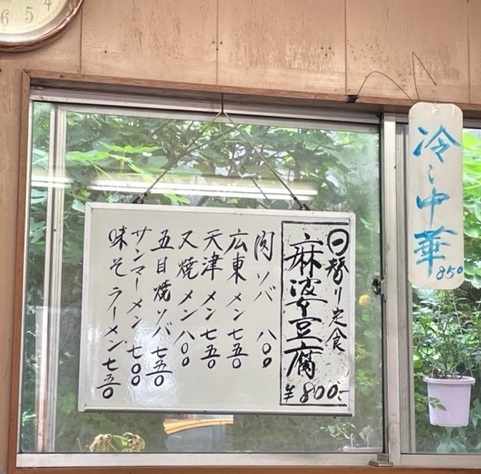 日替り定食
麻婆豆腐
¥800-
肉ソバ 八〇〇
広東メン 七五〇
天津メン 七五〇
叉焼メン 八〇〇
五目焼ソバ 七五〇
サンマーメン 七〇〇
味そラーメン 七五〇
冷し中華
850
6 5 4